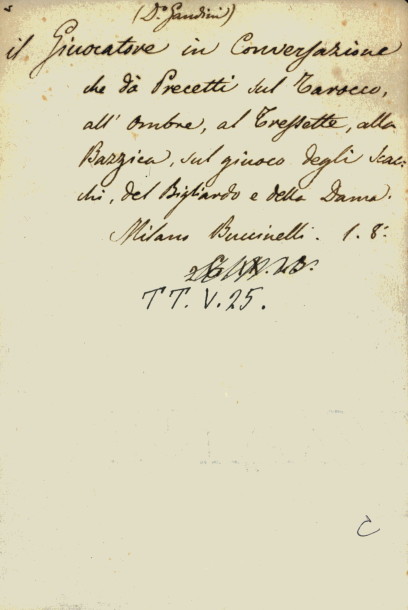 (D.º Gandini)
il Giuocatore in Conversazione
che dà Precetti sul Tarocco,
all' Ombre, al Tressette, alla
Bazzica, sul giuoco degli Scac-
chi, del Bigliardo e della Dama.
Milano Buccinelli. 1. 8.º
TT.V.25.
C